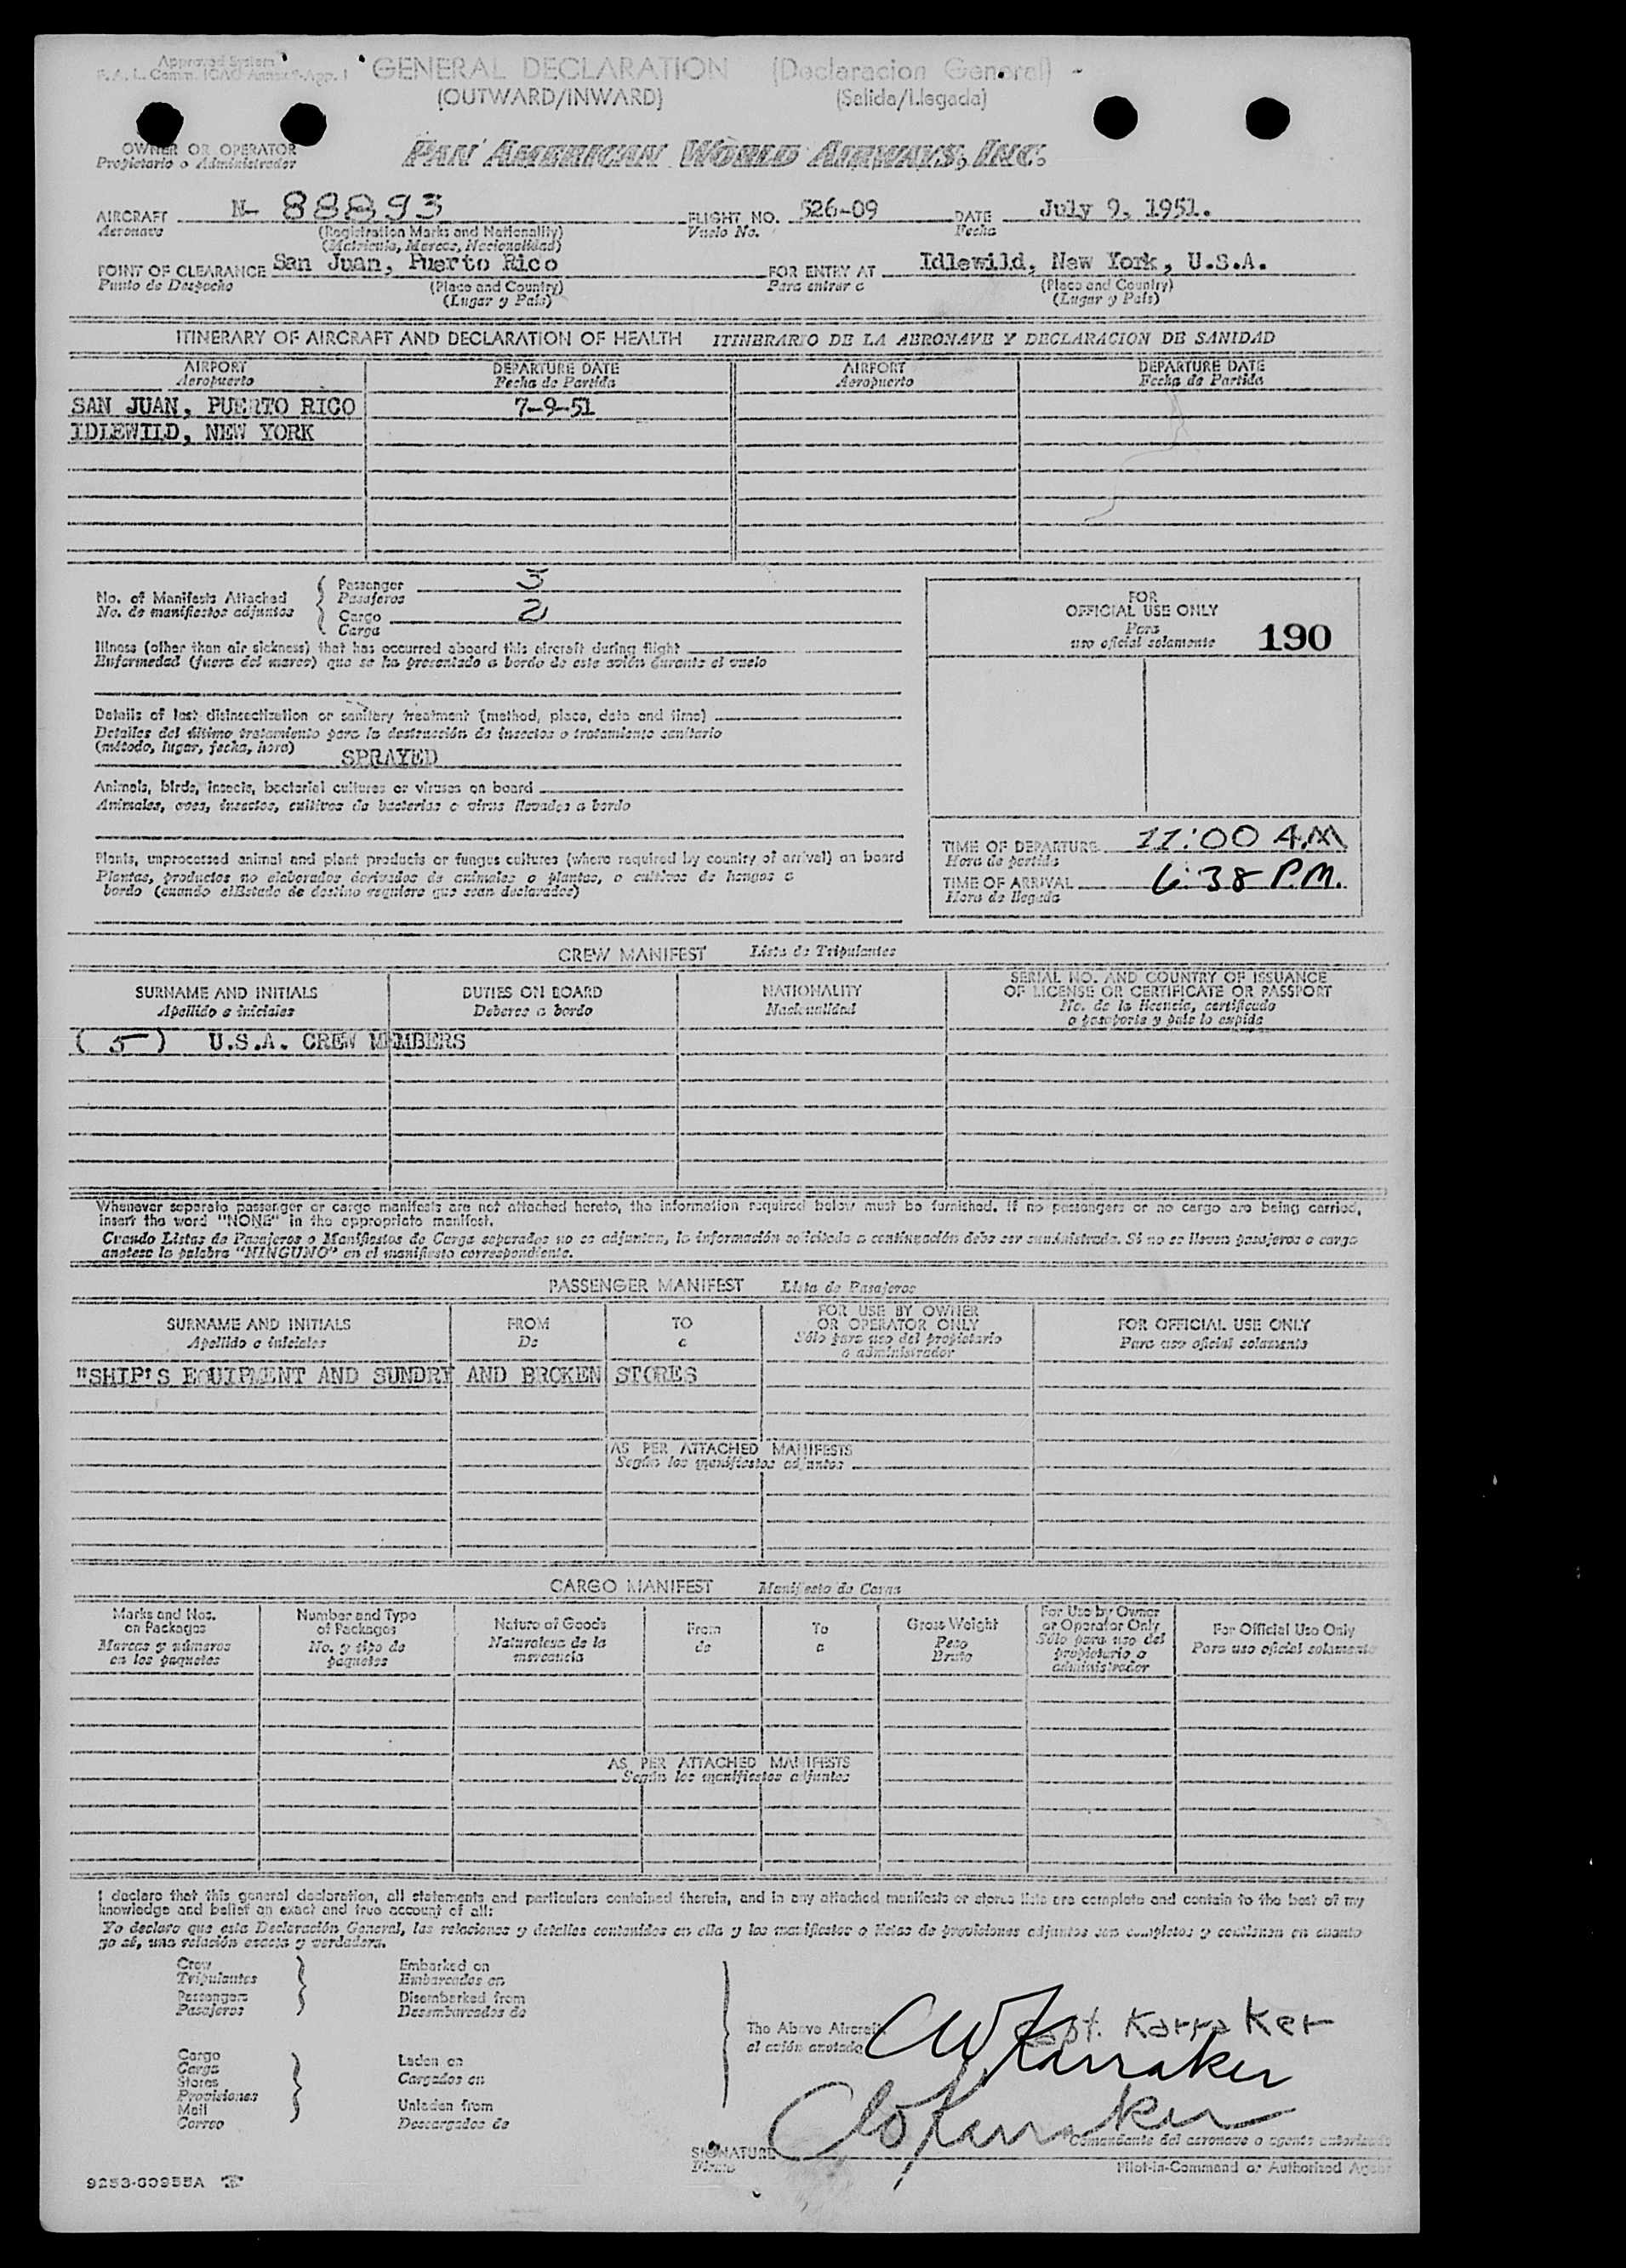 Approved System
F. A. L. Comm. ICAO Annex 9-App. 1
GENERAL DECLARATION (Declaracion General)
(OUTWARD/INWARD) (Salida/Llegada)
OWNER OR OPERATOR
Propietario o Administrador
PAN AMERICAN WORLD AIRWAYS, INC.
AIRCRAFT N- 88893 FLIGHT NO. 526-09 DATE July 9, 1951.
Aeronave (Registration Marks and Nationality) Vuelo No. Fecha
(Matricula, Marcas, Nacionalidad)
POINT OF CLEARANCE San Juan, Puerto Rico FOR ENTRY AT Idlewild, New York, U.S.A.
Punto de Despacho (Place and Country) Para entrar a (Place and Country)
(Lugar y País) (Lugar y País)
ITINERARY OF AIRCRAFT AND DECLARATION OF HEALTH ITINERARIO DE LA AERONAVE Y DECLARACION DE SANIDAD
AIRPORT DEPARTURE DATE AIRPORT DEPARTURE DATE
Aeropuerto Fecha de Partida Aeropuerto Fecha de Partida
SAN JUAN, PUERTO RICO 7-9-51
IDLEWILD, NEW YORK
No. of Manifests Attached
No. de manifiestos adjuntos
Passenger 3
Pasajeros
Cargo 2
Carga
FOR
OFFICIAL USE ONLY
Para
uso oficial solamente 190
Illness (other than air sickness) that has occurred aboard this aircraft during flight
Enfermedad (fuera del mareo) que se ha presentado a bordo de este avión durante el vuelo
Details of last disinsectization or sanitary treatment (method, place, date and time)
Detalles del último tratamiento para la destrucción de insectos o tratamiento sanitario
(método, lugar, fecha, hora) SPRAYED
Animals, birds, insects, bacterial cultures or viruses on board
Animales, aves, insectos, cultivos de bacterias o virus llevados a bordo
Plants, unprocessed animal and plant products or fungus cultures (where required by country of arrival) on board
Plantas, productos no elaborados derivados de animales o plantas, o cultivos de hongos a
bordo (cuando elEstado de destino requiere que sean declarados)
TIME OF DEPARTURE 11:00 A.M.
Hora de partida
TIME OF ARRIVAL 6:38 P.M.
Hora de llegada
CREW MANIFEST Lista de Tripulantes
SURNAME AND INITIALS DUTIES ON BOARD NATIONALITY SERIAL NO. AND COUNTRY OF ISSUANCE OF LICENSE OR CERTIFICATE OR PASSPORT
Apellido e iniciales Deberes a bordo Nacionalidad No. de la licencia, certificado o pasaporte y país lo expide
(5) U.S.A. CREW MEMBERS
Whenever separate passenger or cargo manifests are not attached hereto, the information required below must be furnished. If no passengers or no cargo are being carried,
insert the word "NONE" in the appropriate manifest.
Cuando Listas de Pasajeros o Manifiestos de Carga separados no se adjuntan, la información solicitada a continuación debe ser suministrada. Si no se llevan pasajeros o carga
anotese la palabra "NINGUNO" en el manifiesto correspondiente.
PASSENGER MANIFEST Lista de Pasajeros
SURNAME AND INITIALS FROM TO FOR USE BY OWNER OR OPERATOR ONLY FOR OFFICIAL USE ONLY
Apellido e iniciales De a Sólo para uso del propietario o administrador Para uso oficial solamente
"SHIP'S EQUIPMENT AND SUNDRY AND BROKEN STORES
AS PER ATTACHED MANIFESTS
Según los manifiestos adjuntos
CARGO MANIFEST Manifiesto de Carga
Marks and Nos. on Packages Number and Type of Packages Nature of Goods From To Gross Weight For Use by Owner or Operator Only For Official Use Only
Marcas y números en los paquetes No. y tipo de paquetes Naturaleza de la mercancía de a Peso Bruto Sólo para uso del propietario o administrador Para uso oficial solamente
AS PER ATTACHED MANIFESTS
Según los manifiestos adjuntos
I declare that this general declaration, all statements and particulars contained therein, and in any attached manifests or stores lists are complete and contain to the best of my
knowledge and belief an exact and true account of all:
Yo declaro que esta Declaración General, las relaciones y detalles contenidos en ella y los manifiestos o listas de provisiones adjuntos son completos y contienen en cuanto
yo sé, una relación exacta y verdadera.
Crew Embarked on
Tripulantes Embarcados en
Passengers Disembarked from
Pasajeros Desembarcados de
The Above Aircraft
el avión anotado
Capt. Karraker
CW Karraker
Cargo Laden on
Carga Cargados en
Stores
Provisiones
Mail Unladen from
Correo Descargados de
CW Karraker
SIGNATURE
Firma
Comandante del aeronave o agente autorizado
Pilot-in-Command or Authorized Agent
9253-60955A